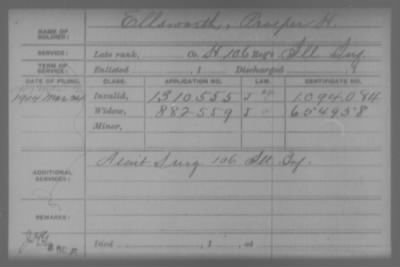 NAME OF SOLDIER: Ellsworth, Prosper H.
SERVICE: Late rank, Co. H, 106 Reg't Ill Inf.
TERM OF SERVICE: Enlisted , 1 Discharged , 1
DATE OF FILING. CLASS. APPLICATION NO. LAW. CERTIFICATE NO.
1904 Mar Invalid, 1310555 1094084
Widow, 882559 654958
Minor,
ADDITIONAL SERVICES: Assist Surg 106 Ill Inf.
REMARKS:
Died , 1 , at